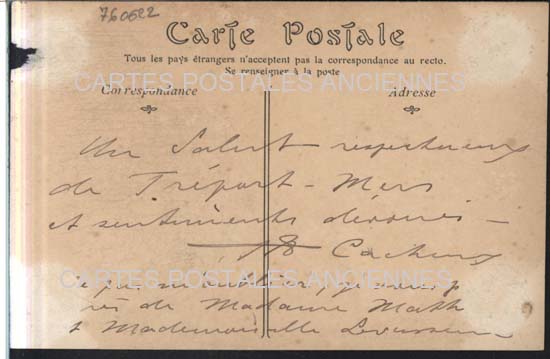 760622
Carte Postale
Tous les pays étrangers n'acceptent pas la correspondance au recto.
Se renseigner à la poste
CARTES POSTALES ANCIENNES
Correspondance
Adresse
Un Salut respectueux
de Tréport - Mers
et sentiments dévoués -
CARTES POSTALES ANCIENNES
de Madame
& Mademoiselle